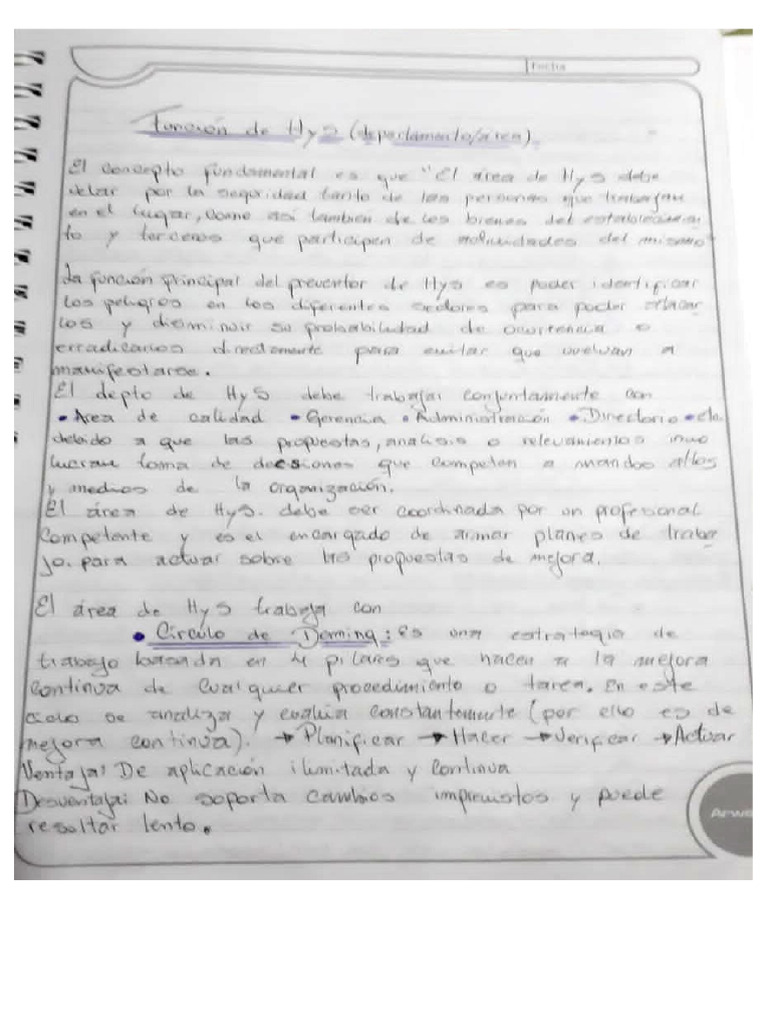 Fecha
Función de HyS (departamento/área)
El concepto fundamental es que "El área de HyS debe
velar por la seguridad tanto de las personas que trabajan
en el lugar, como así tambien de los bienes del establecimien
to y terceros que participen de actividades del mismo"
La función principal del preventor de HyS es poder identificar
los peligros en los diferentes sectores para poder atacar
los y disminuir su probabilidad de ocurrencia o
erradicarlos directamente para evitar que vuelvan a
manifestarse.
El depto de HyS debe trabajar conjuntamente con
• Area de calidad • Gerencia • Administración • Directorio • etc.
debido a que las propuestas, analisis o relevamientos invo
lucran toma de decisiones que competen a mandos altos
y medios de la organización.
El área de HyS. debe ser coordinada por un profesional
competente y es el encargado de armar planes de traba
jo. para actuar sobre las propuestas de mejora.
El área de HyS trabaja con
• Círculo de Deming: Es una estrategia de
trabajo basada en 4 pilares que hacen a la mejora
continua de cualquier procedimiento o tarea. En este
ciclo se analiza y evalúa constantemente (por ello es de
mejora continua). → Planificar → Hacer → Verificar → Actuar
Ventaja: De aplicación ilimitada y continua
Desventaja: No soporta cambios imprevistos y puede
resultar lento.